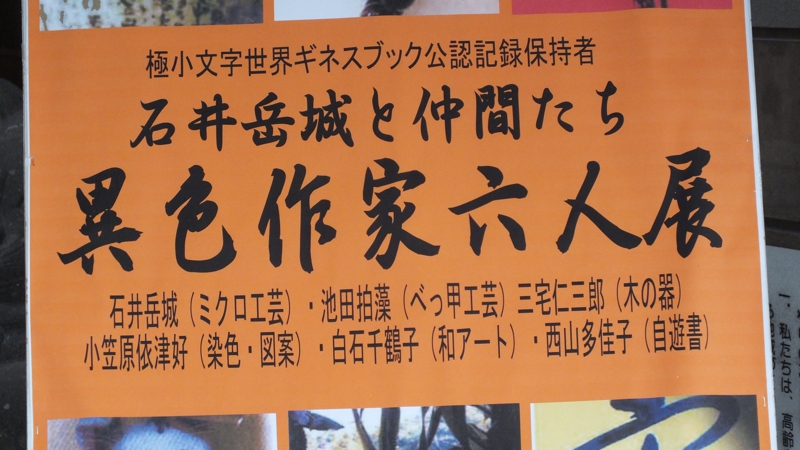 極小文字世界ギネスブック公認記録保持者
石井岳城と仲間たち
異色作家六人展
石井岳城（ミクロ工芸）・池田拍藻（べっ甲工芸）三宅仁三郎（木の器）
小笠原依津好（染色・図案）・白石千鶴子（和アート）・西山多佳子（自遊書）
一、私たちは、高齢